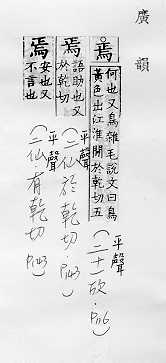 廣韻
焉
何也又鳥雜毛說文曰鳥
黃色出江淮閒於乾切五
平聲
(二十一欣.P116)
焉
語助也又
於乾切
平聲
(二仙 於乾切.P143)
焉
安也又
不言也
平聲
(二仙 有乾切 P143)